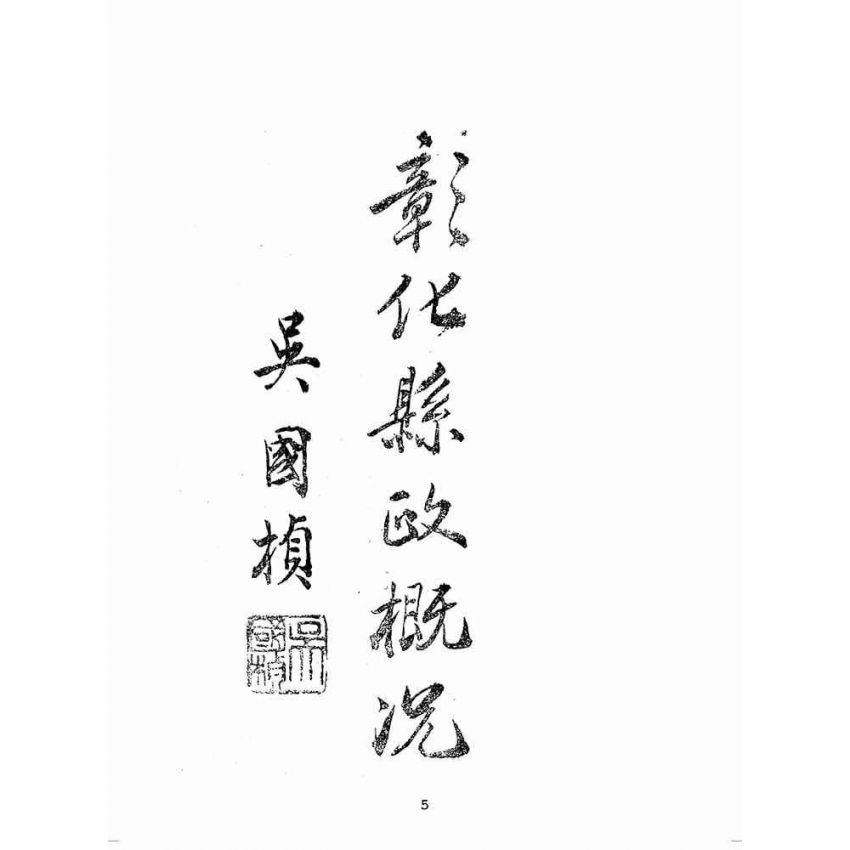 彰化縣政概況
吳國楨
吳國楨
5